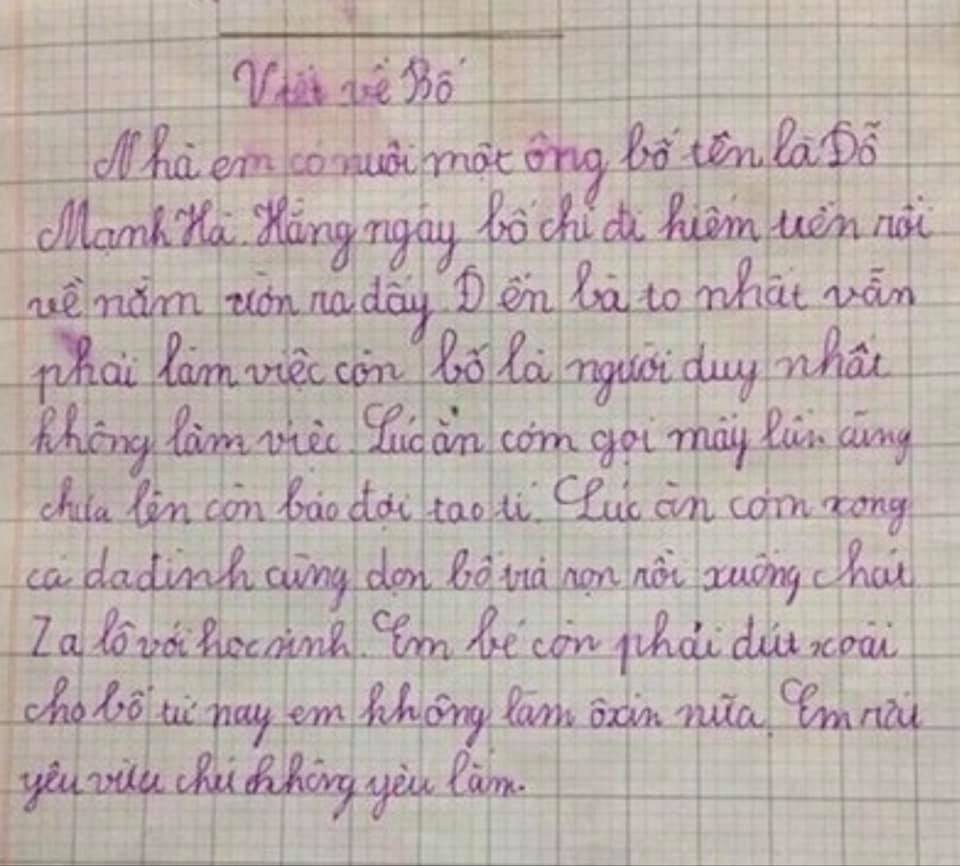 Viết về Bố
Nhà em có nuôi một ông bố tên là Đỗ
Mạnh Hà. Hằng ngày bố chỉ đi hiêm uên rồi
về nằm ườn ra đấy. Đến bà to nhất vẫn
phải làm việc còn bố là người duy nhất
không làm việc. Lúc ăn cơm gọi mấy lần cũng
chưa lên còn bảo đợi tao tí. Lúc ăn cơm xong
cả da đình cùng dọn bố trả rọn rồi xuống chát
Za lô với học sinh. Em bé còn phải dút xoài
cho bố từ nay em không làm ôxin nữa. Em rất
yêu vừa chứ không yêu lắm.